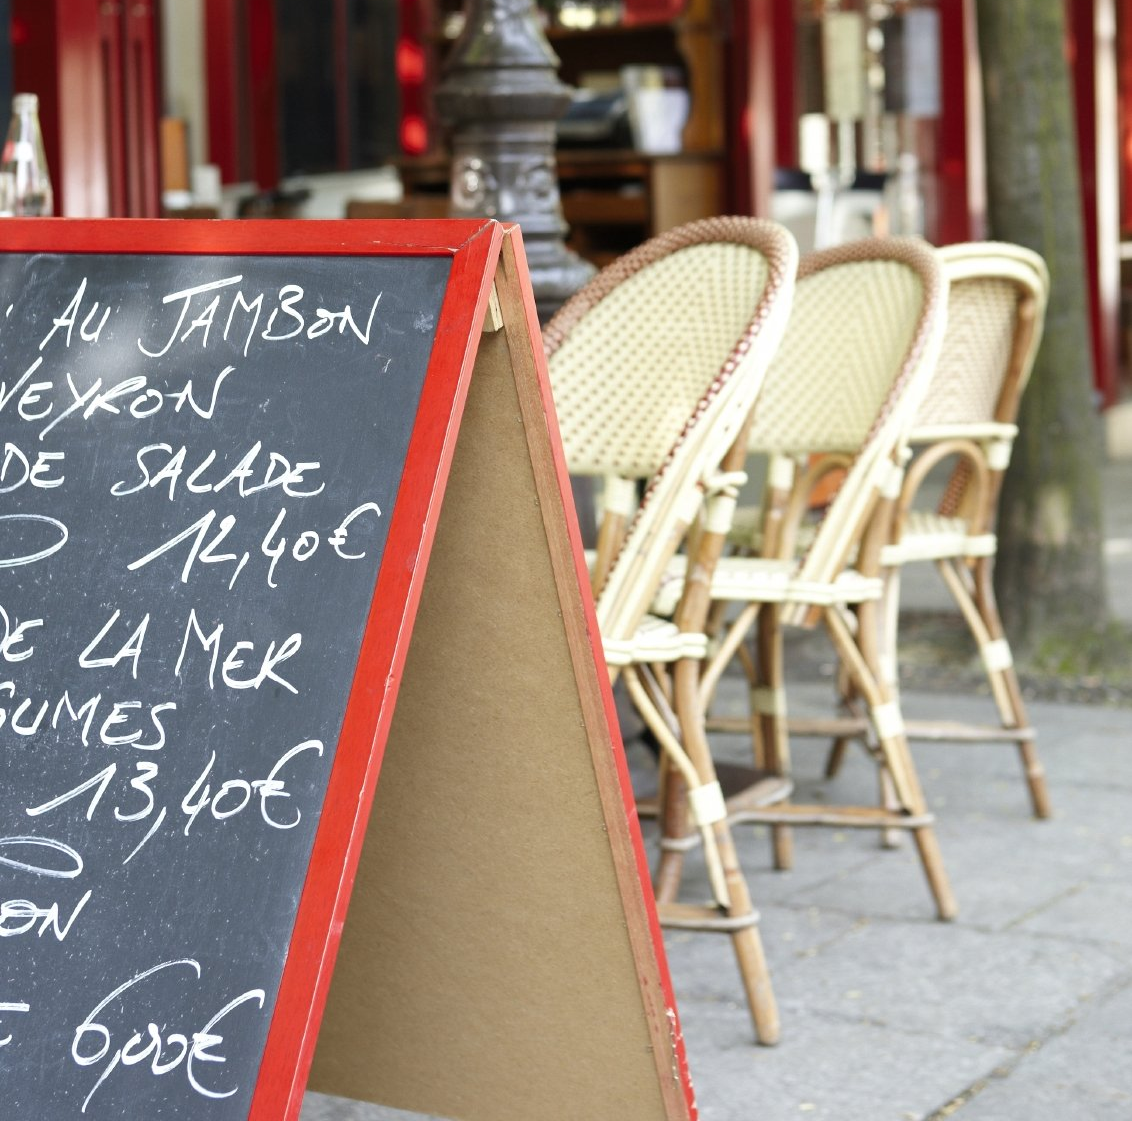 AU JAMBON
VEYRON
DE SALADE
12,40€
DE LA MER
GUMES
13,40€
ON
6,00€